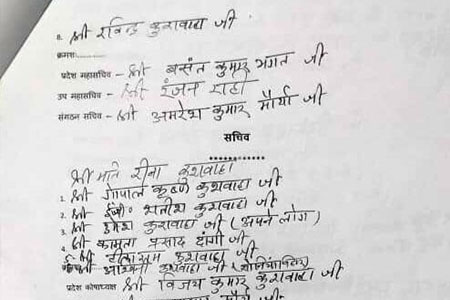 8. श्री रविन्द्र कुशवाहा जी
क्रमशः
प्रदेश महासचिव - श्री बसंत कुमार भगत जी
उप महासचिव - श्री रंजन
संगठन सचिव - श्री अमरेश कुमार मौर्या जी
सचिव
रीना कुशवाहा
1. श्री गोपाल कृष्ण कुशवाहा जी
2. श्री ई०. कुशवाहा जी
3. श्री कुशवाहा जी (अपने लोग)
4. श्री कामता प्रसाद दांगी जी
5. श्री कुशवाहा जी
कुशवाहा जी
प्रदेश कोषाध्यक्ष श्री विजय कुमार कुशवाहा जी